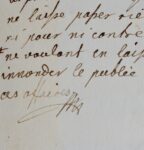 ne laisse paper
ni pour ni contre
ne voulant en lais
innonder le publié
ces affiches